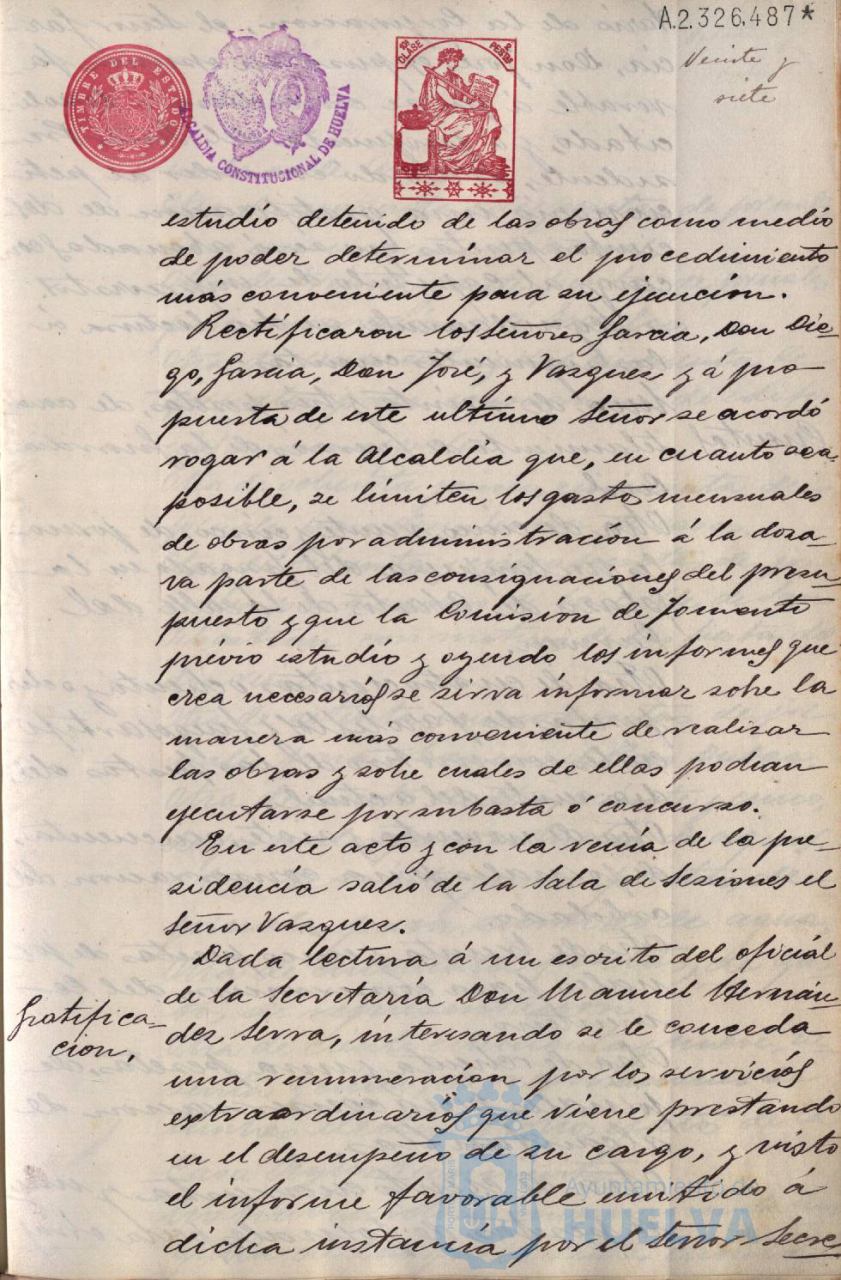 A.2.326.487*
Veinte y
siete
TIMBRE DEL ESTADO
ALCALDIA CONSTITUCIONAL DE HUELVA
CLASE
PESETAS
estudio detenido de las obras como medio
de poder determinar el procedimiento
más conveniente para su ejecución.
Rectificaron los Señores Garcia, Don Die-
go, Garcia, Don José, y Vazquez y á pro-
puesta de este ultimo Señor se acordó
rogar á la Alcaldia que, en cuanto sea
posible, se limiten los gastos mensuales
de obras por administración á la doza-
va parte de las consignaciones del presu-
puesto y que la Comisión de Fomento
prévio estudio y oyendo los informes que
crea necesarios se sirva informar sobre la
manera más conveniente de realizar
las obras y sobre cuales de ellas podrian
ejecutarse por subasta ó concurso.
En este acto y con la venia de la pre-
sidencia salió de la Sala de Sesiones el
Señor Vazquez.
Gratifica-
cion,
Dada lectura á un escrito del oficial
de la Secretaría Don Manuel Hernán-
dez Serra, interesando se le conceda
una remuneración por los servicios
extraordinarios que viene prestando
en el desempeño de su cargo, y visto
el informe favorable emitido á
dicha instancia por el Señor Secre
Ayuntamiento de
HUELVA